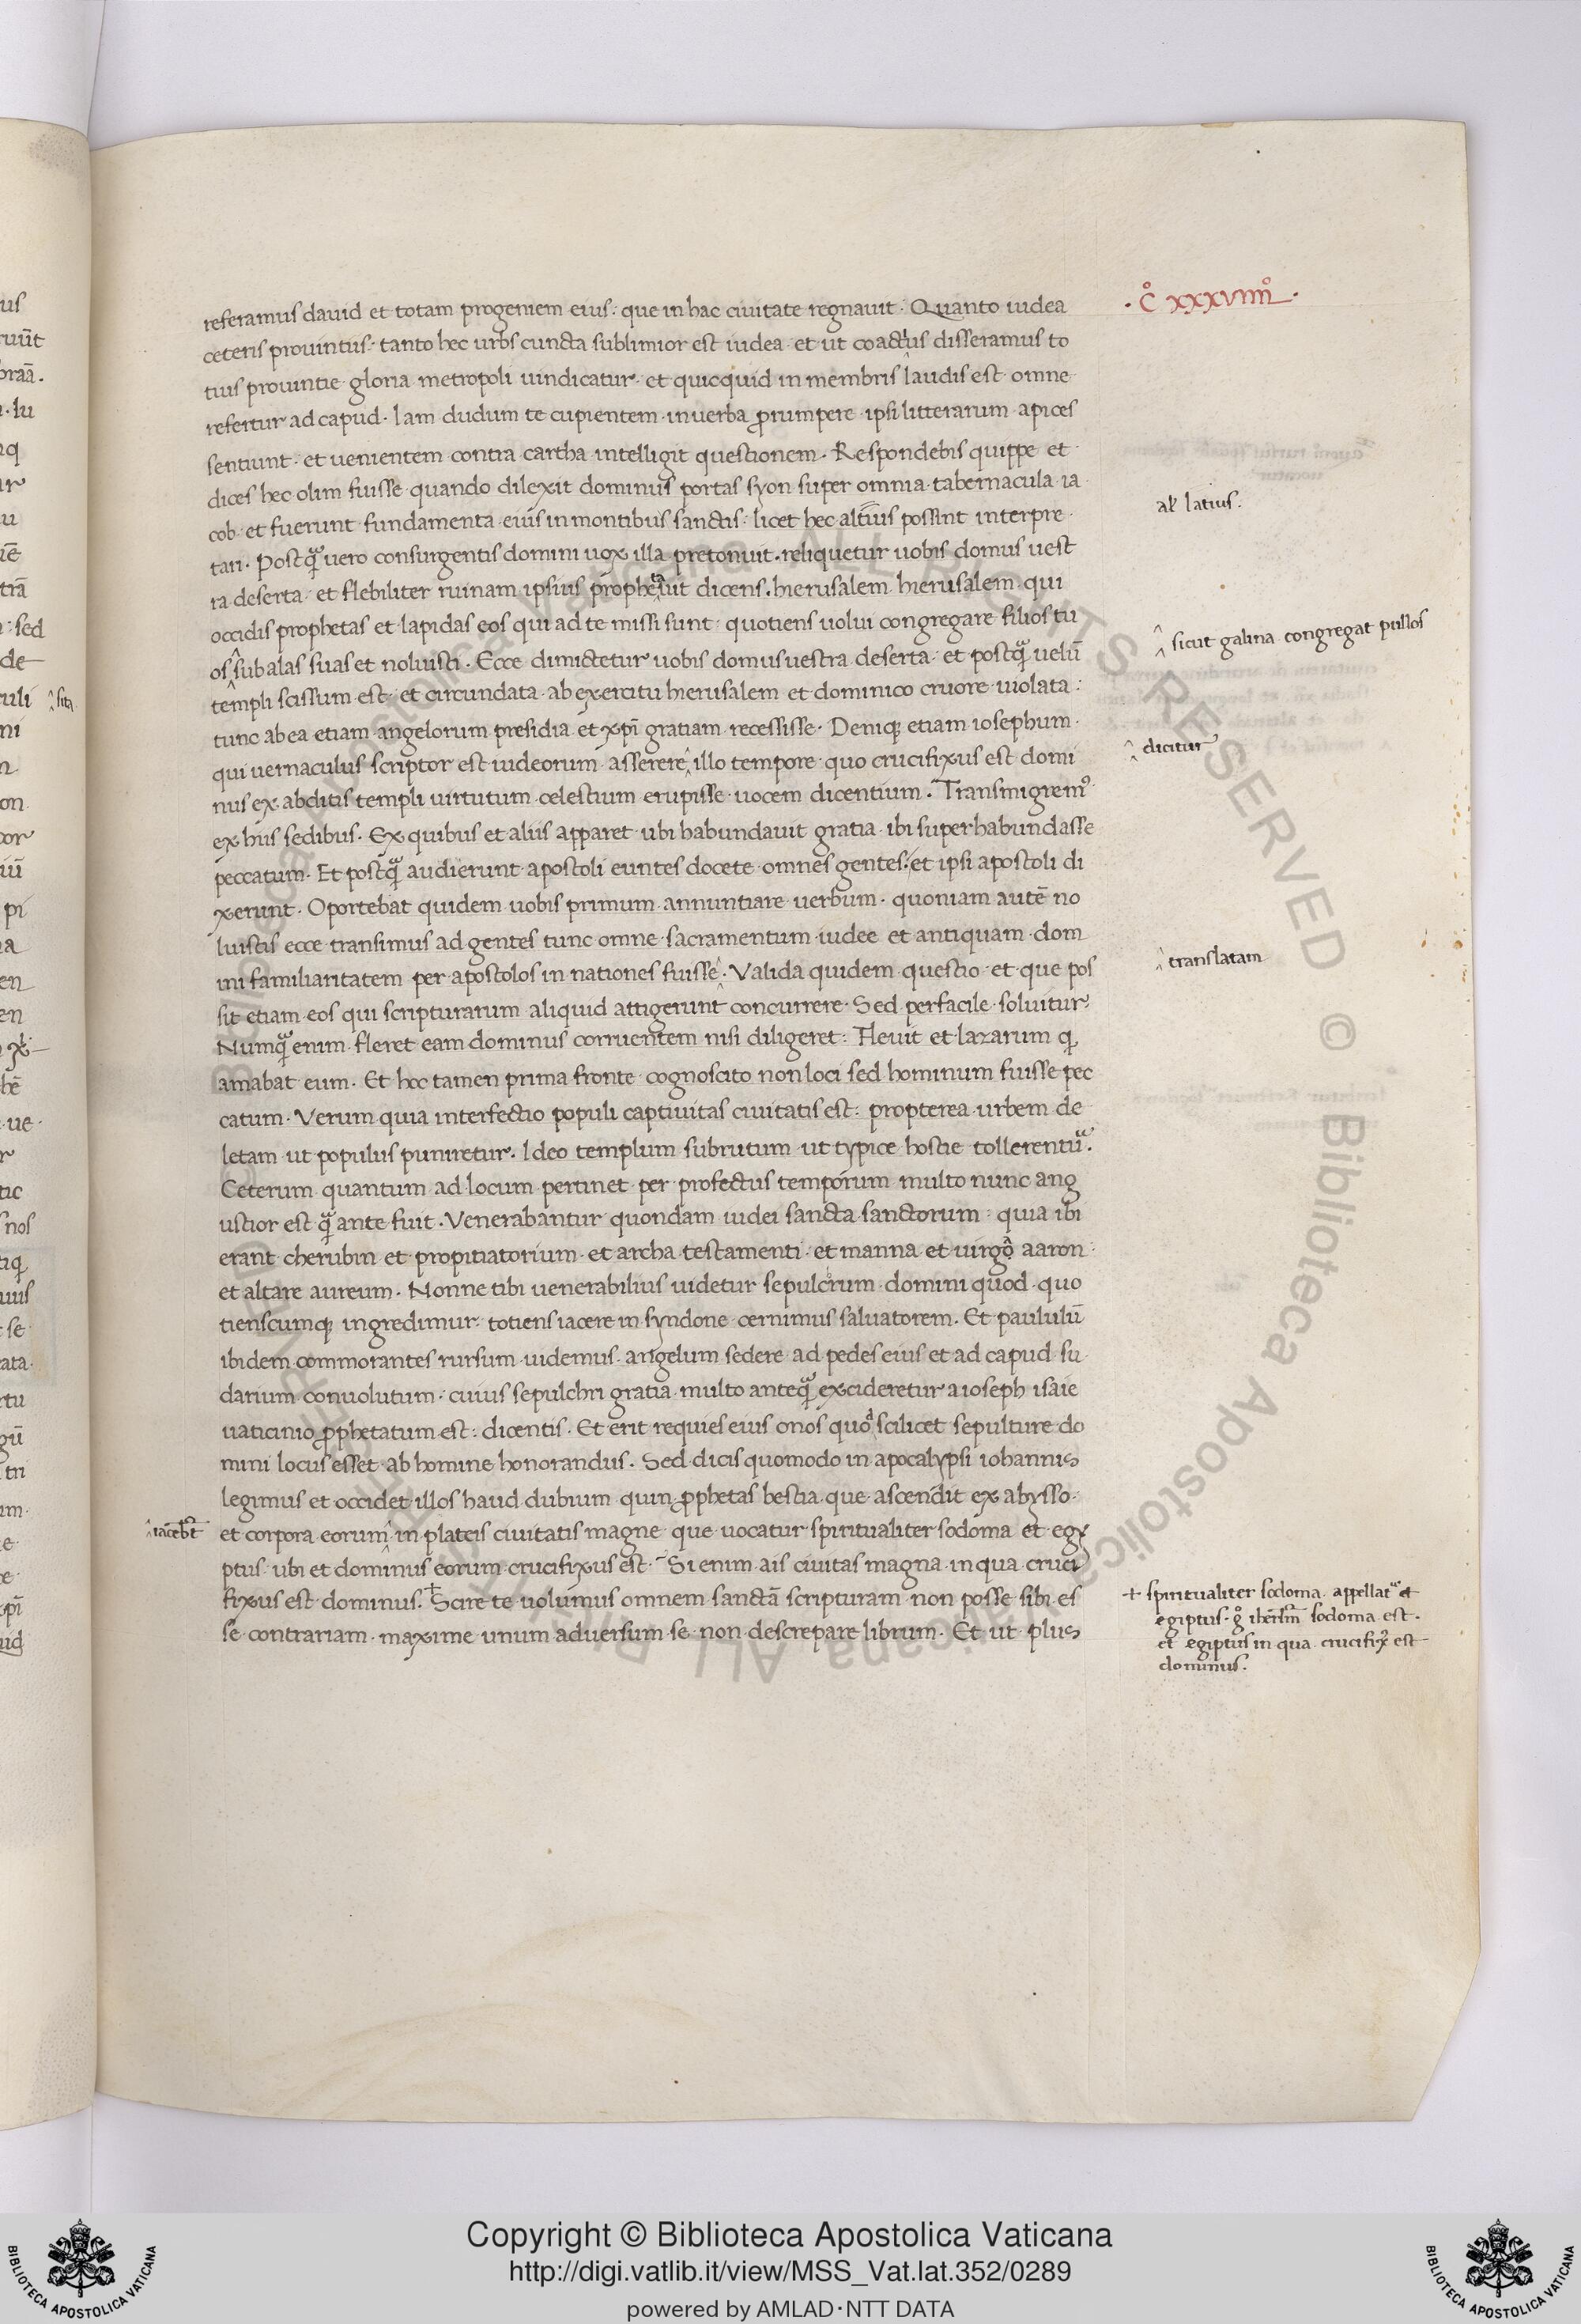 · C̊ xxxviiii̊ ·
referamus dauid et totam progeniem eius: que in hac ciuitate regnauit · Quanto iudea
ceteris prouintiis: tanto hec urbs cuncta sublimior est iudea · et ut coactius disseramus to
tius prouintie gloria metropoli uindicatur · et quicquid in membris laudis est omne
refertur ad capud · Iam dudum te cupientem in uerba ꝓrumpere ipsi litterarum apices
sentiunt · et uenientem contra cartha intelligit questionem · Respondebis quippe et
dices hec olim fuisse quando dilexit dominus portas syon super omnia tabernacula ia
cob · et fuerunt fundamenta eius in montibus sanctis: licet hec altius possint interpre
al' latius.
tari · Postqᷓ uero consurgentis domini uox illa pretonuit · reliquetur uobis domus uest
ra deserta · et flebiliter ruinam ipsius prophetauit dicens · hierusalem hierusalem qui
occidis prophetas et lapidas eos qui ad te missi sunt · quotiens uolui congregare filios tu
^ sicut galina congregat pullos
os ^ sub alas suas et noluisti · Ecce dimictetur uobis domus uestra deserta · et postqᷓ uelū
templi scissum est · et circundata ab exercitu hierusalem et dominico cruore uiolata:
tunc ab ea etiam angelorum presidia et xp̄i gratiam recessisse · Deniqꝫ etiam iosephum
^ dicitur
qui uernaculus scriptor est iudeorum asserere ^ illo tempore quo crucifixus est domi
nus ex abditis templi uirtutum celestium erupisse uocem dicentium · Transmigremꝰ
ex hiis sedibus · Ex quibus et aliis apparet ubi habundauit gratia ibi superhabundasse
peccatum · Et postqᷓ audierunt apostoli euntes docete omnes gentes: et ipsi apostoli di
xerunt · Oportebat quidem uobis primum annuntiare uerbum · quoniam autē no
luistis ecce transimus ad gentes tunc omne sacramentum iudee et antiquam dom
ini familiaritatem per apostolos in nationes fuisse ^ · Valida quidem questio et que pos
^ translatam
sit etiam eos qui scripturarum aliquid attigerunt concurrere · Sed perfacile soluitur
Numqᷓ enim fleret eam dominus corruentem nisi diligeret: Fleuit et lazarum qꝫ
amabat eum · Et hoc tamen prima fronte cognoscito non loci sed hominum fuisse pec
catum · Verum quia interfectio populi captiuitas ciuitatis est: propterea urbem de
letam ut populus puniretur · Ideo templum subrutum ut typice hostie tollerentuᷓ ·
Ceterum quantum ad locum pertinet per profectus temporum multo nunc ang
ustior est qᷓ ante fuit · Venerabantur quondam iudei sancta sanctorum: quia ibi
erant cherubin et propitiatorium et archa testamenti et manna et uirgo aaron
et altare aureum · Nonne tibi uenerabilius uidetur sepulcrum domini quod quo
tienscumqꝫ ingredimur: totiens iacere in syndone cernimus saluatorem · Et paululū
ibidem commorantes rursum uidemus angelum sedere ad pedes eius et ad capud su
darium conuolutum · cuius sepulchri gratia multo anteqᷓ excideretur a ioseph isaie
uaticinio ꝓphetatum est: dicentis · Et erit requies eius onos quod scilicet sepulture do
mini locus esset ab homine honorandus · Sed dicis quomodo in apocalypsi iohannis
legimus et occidet illos haud dubium quin ꝓphetas bestia que ascendit ex abysso:
^ iaceb't
et corpora eorum ^ in plateis ciuitatis magne que uocatur spiritualiter sodoma et egy
ptus ubi et dominus eorum crucifixus est · Si enim ais ciuitas magna in qua cruci
fixus est dominus · + Scire te uolumus omnem sanctā scripturam non posse sibi es
+ spiritualiter sodoma appellatᷓ et
egiptus · g̊ iherlm̄ sodoma est ·
et egiptus in qua crucifixꝰ est
dominus ·
se contrariam maxime unum aduersum se non descrepare librum · Et ut plus
Copyright © Biblioteca Apostolica Vaticana
http://digi.vatlib.it/view/MSS_Vat.lat.352/0289
powered by AMLAD·NTT DATA
BIBLIOTECA APOSTOLICA VATICANA
BIBLIOTECA APOSTOLICA VATICANA